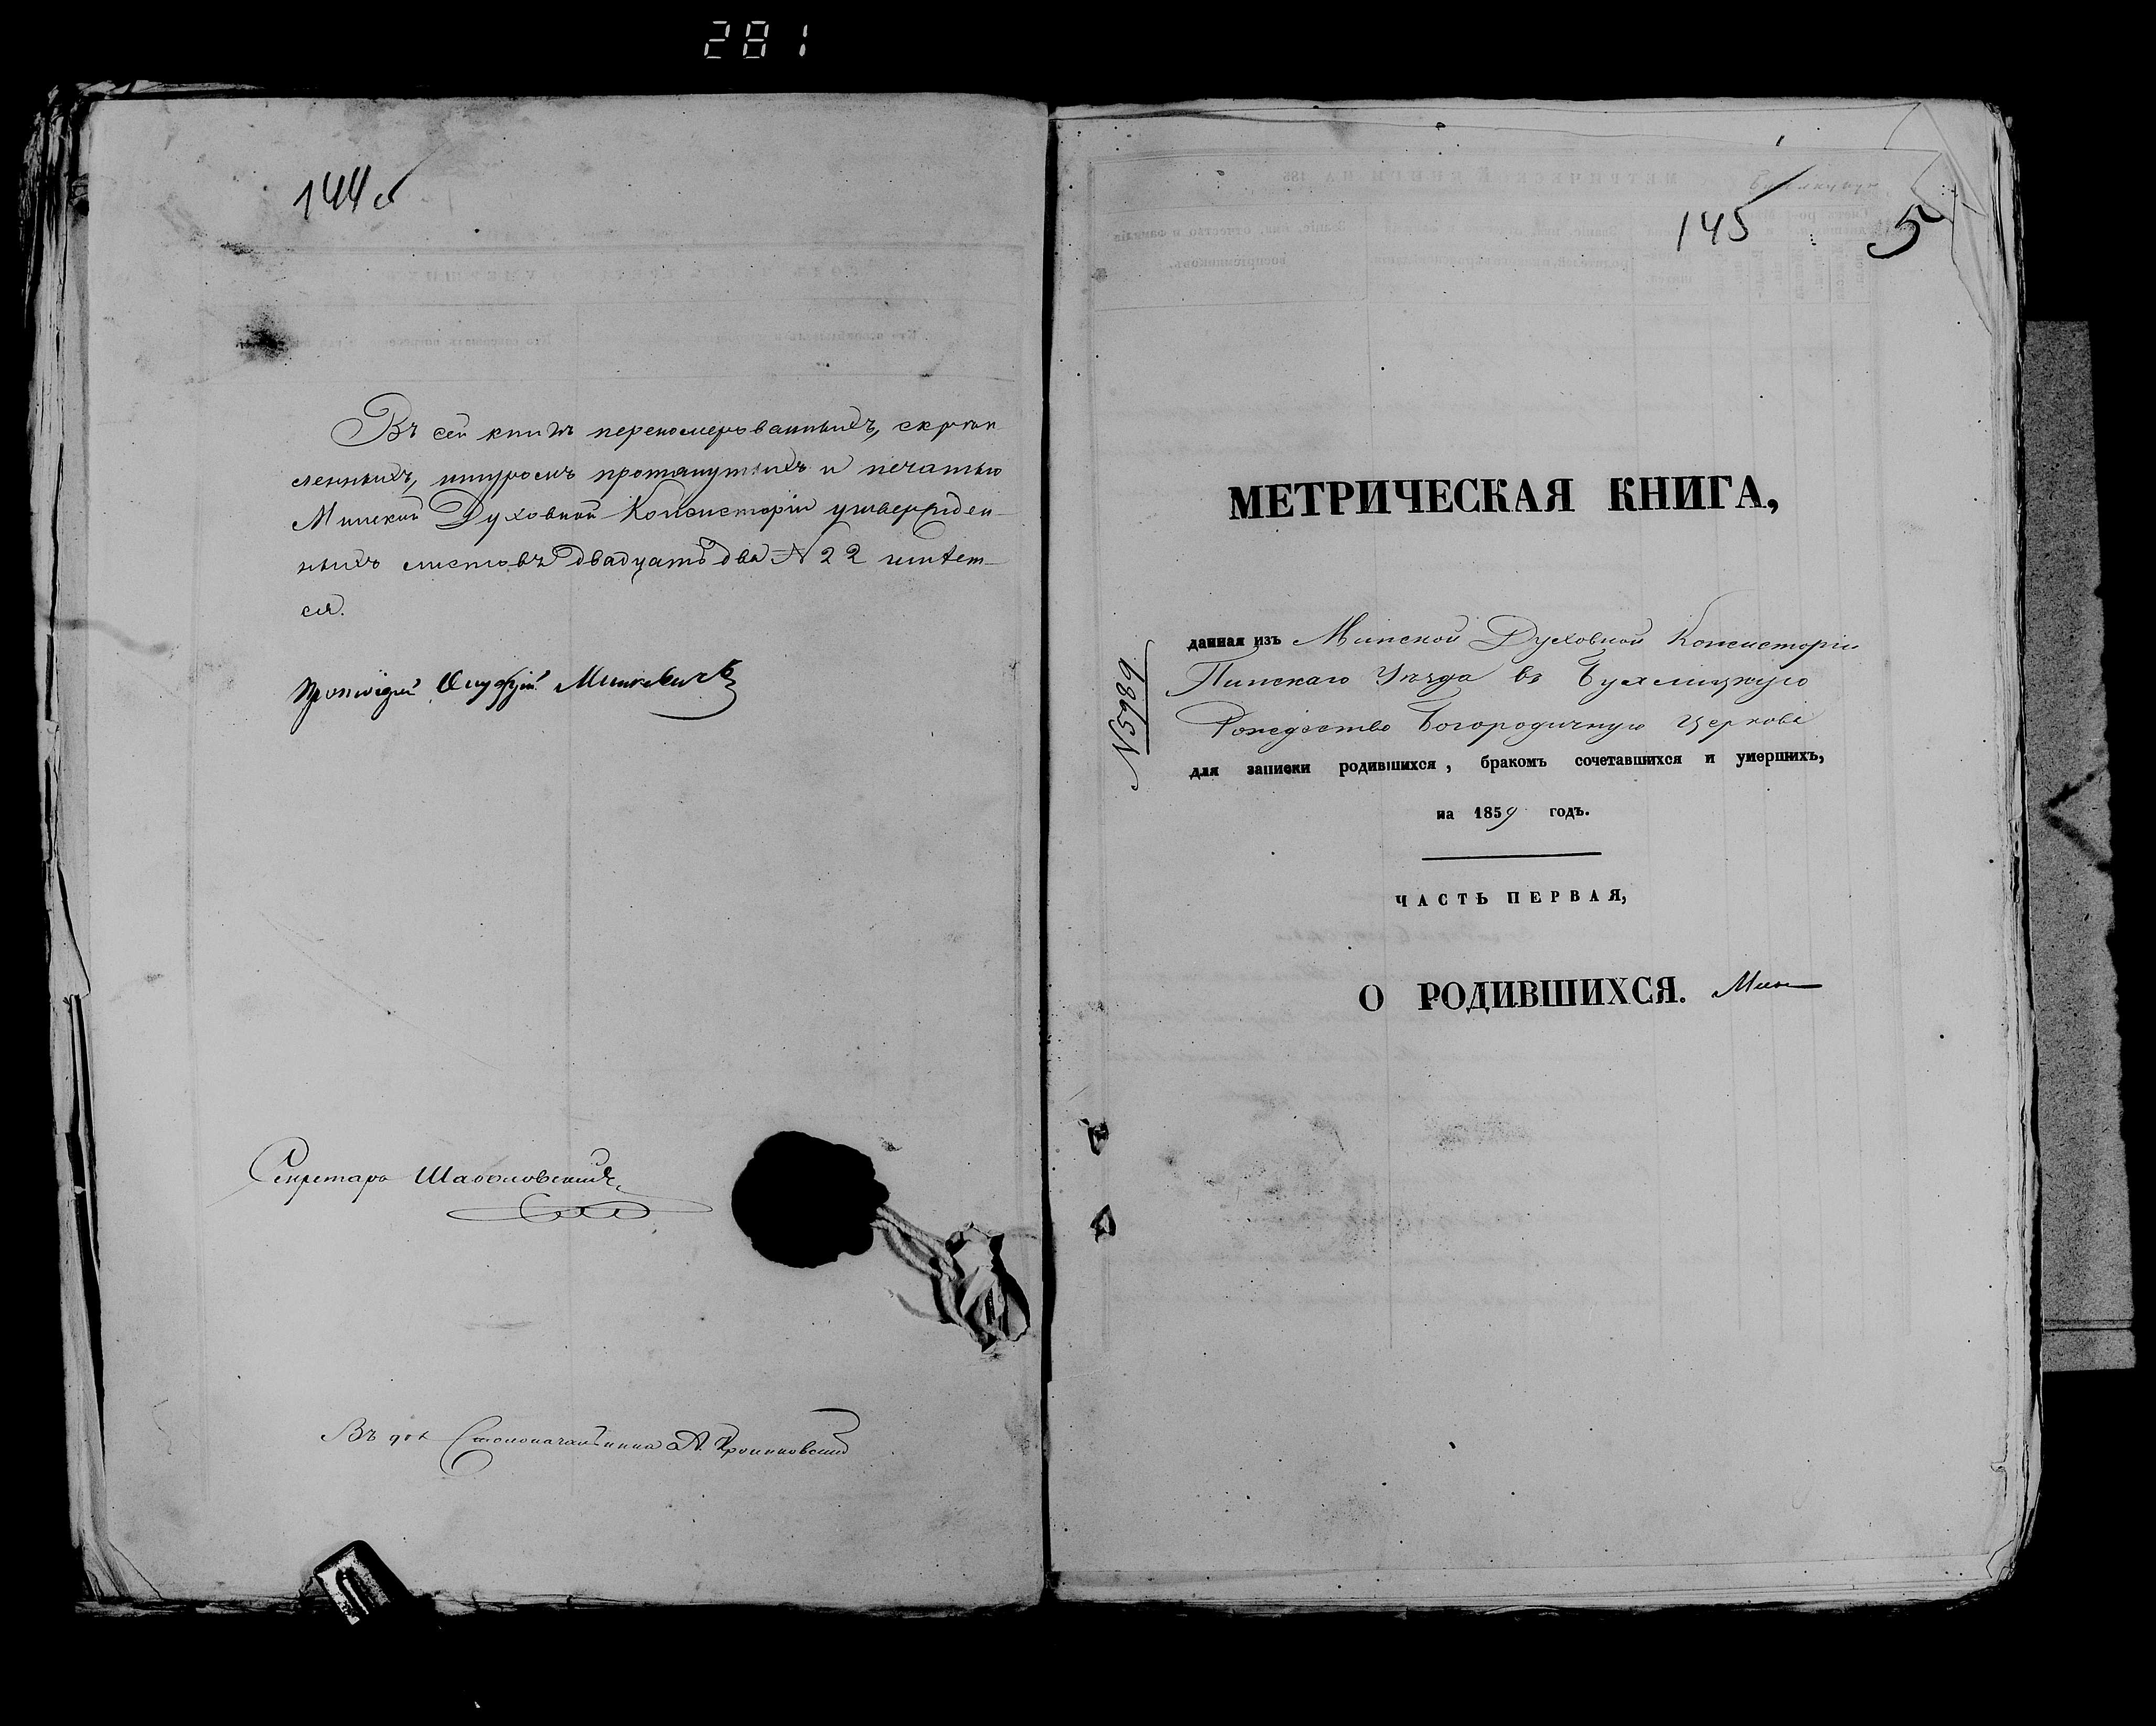 281
144об
Въ сей книгѣ перенумерованныхъ, скрѣп
ленныхъ, шнуромъ протянутыхъ и печатью
Минской Духовной Консисторіи утвержден-
ныхъ листовъ двадцать два № 22 имѣет-
ся.
Протоіерей Онуфрій
Секретарь
Въ дол. Столоначальника А.
145
5
МЕТРИЧЕСКАЯ КНИГА,
№ 5989
данная изъ Минской Духовной Консисторіи
Пинскаго Уѣзда въ
Рождество Богородичную церковь
для записки родившихся, бракомъ сочетавшихся и умершихъ,
на 1859 годъ.
ЧАСТЬ ПЕРВАЯ,
О РОДИВШИХСЯ.